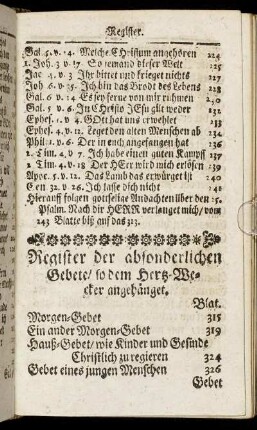 Register.
Gal. 5. v. 24. Welche Christum angehören 224
1. Joh. 3. v. 17. So jemand dieser Welt 225
Jac. 4. v. 3. Ihr bittet und krieget nichts 227
Joh. 6. v. 35. Ich bin das Brodt des Lebens 228
Gal. 6. v. 14. Es sey ferne von mir rühmen 230
Gal. 5. v. 6. In Christo Jesu gilt weder 231
Ephes. 1. v. 4. GOtt hat uns erwehlet
Ephes. 4. v. 22. Leget den alten Menschen ab 234
Phil. 1. v. 6. Der in euch angefangen hat 236
2. Tim. 4. v. 7. Ich habe einen guten Kampff 237
2. Tim. 4. v. 18. Der HErr wird mich erlösen 239
Apoc. 5. v. 12. Das Lamb das erwürget ist 240
Gen. 32. v. 26. Ich lasse dich nicht 241
Hierauff folgen gottselige Andachten über den 25.
Psalm. Nach dir HERR verlanget mich/ vom
243 Blatte biß auf das 313.
Register der absonderlichen
Gebete/ so dem Hertz-We-
cker angehänget.
Blat.
Morgen-Gebet 315
Ein ander Morgen-Gebet 319
Hauß-Gebet/ wie Kinder und Gesinde
Christlich zu regieren 324
Gebet eines jungen Menschen 326
Gebet